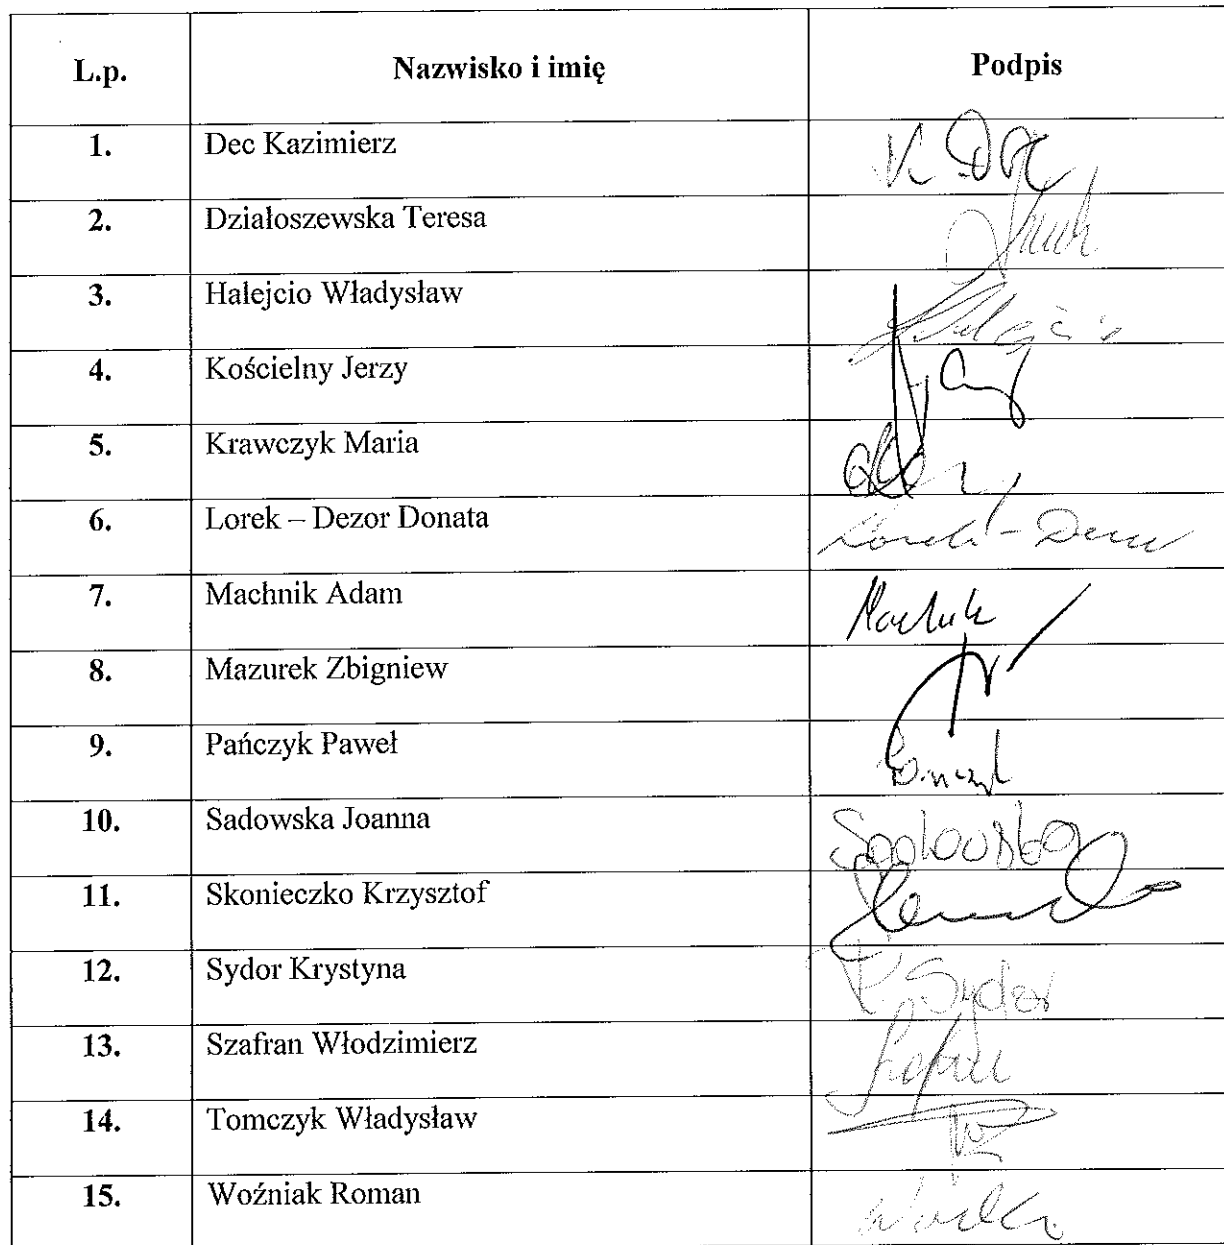 L.p. Nazwisko i imię Podpis
1. Dec Kazimierz K. Dec
2. Działoszewska Teresa
3. Halejcio Władysław Halejcio
4. Kościelny Jerzy
5. Krawczyk Maria
6. Lorek – Dezor Donata Lorek-Dezor
7. Machnik Adam Machnik
8. Mazurek Zbigniew
9. Pańczyk Paweł Pańczyk
10. Sadowska Joanna Sadowska
11. Skonieczko Krzysztof
12. Sydor Krystyna K. Sydor
13. Szafran Włodzimierz
14. Tomczyk Władysław
15. Woźniak Roman